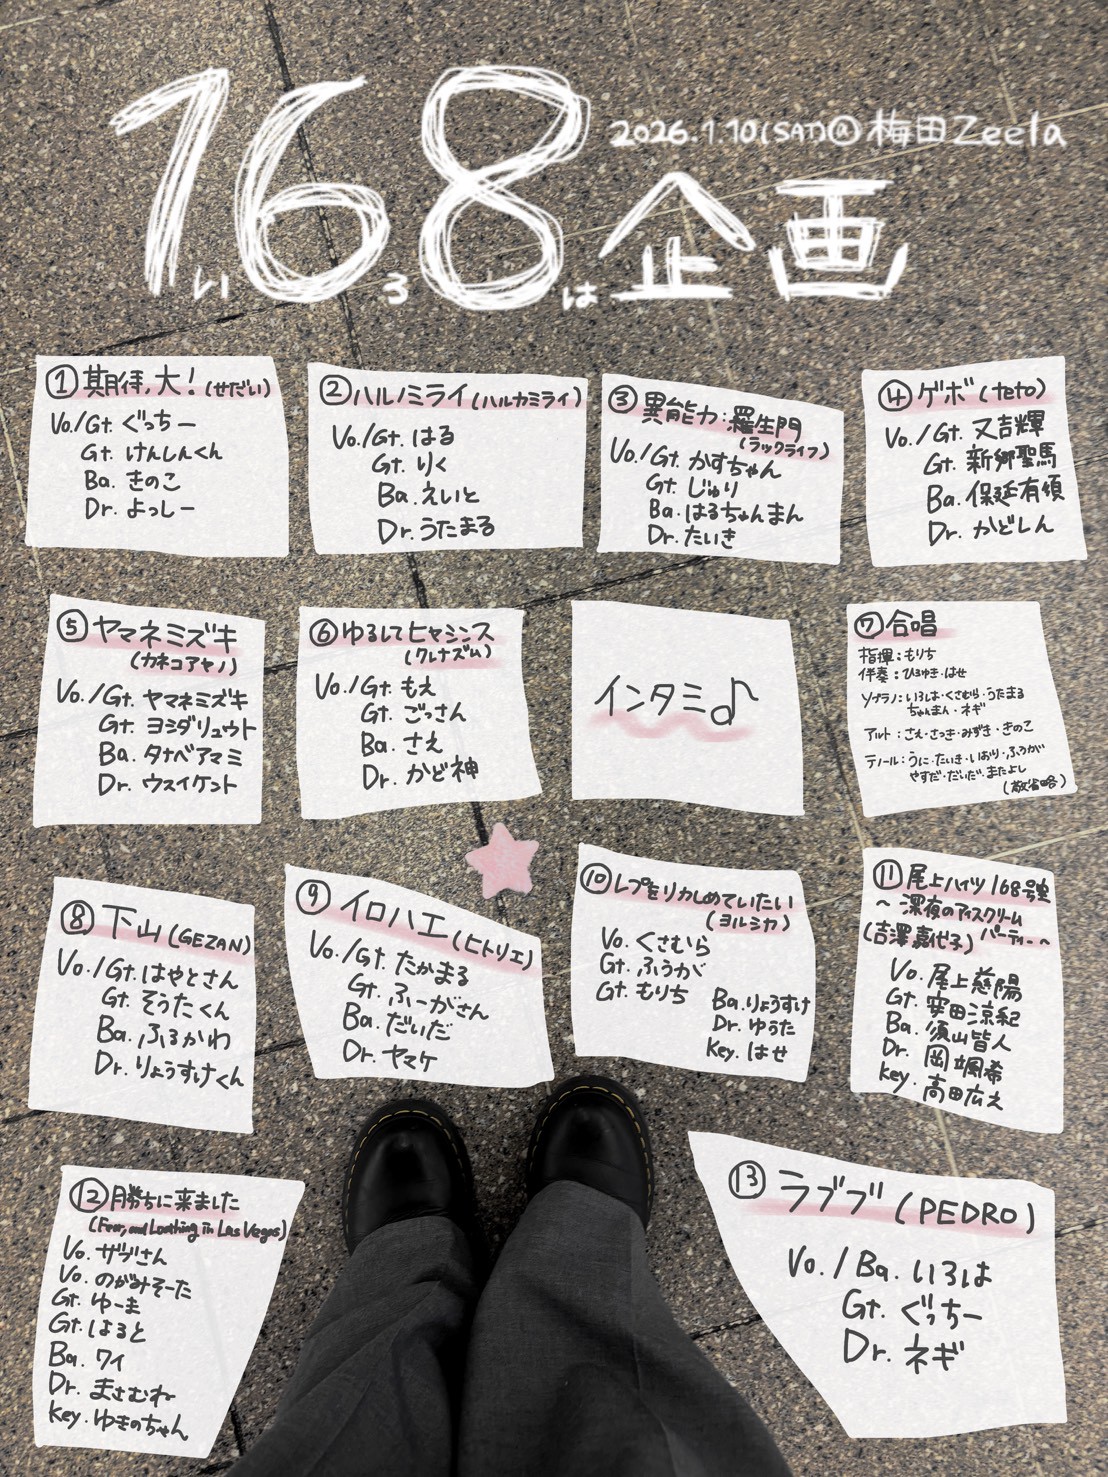 168企画
いろは
2026.1.10(SAT)@梅田Zeela
①期待.大!(せだい)
Vo./Gt. ぐっちー
Gt. けんしんくん
Ba. きのこ
Dr. よっしー
②ハルノミライ(ハルカミライ)
Vo./Gt. はる
Gt. りく
Ba. えいと
Dr. うたまる
③異能力:羅生門
(ラックライフ)
Vo./Gt. かすちゃん
Gt. じゅり
Ba. はるちゃんまん
Dr. たいき
④ゲボ(teto)
Vo./Gt. 又吉輝
Gt. 新郷聖馬
Ba. 保延有頓
Dr. かどしん
⑤ヤマネミズキ
(カネコアヤノ)
Vo./Gt. ヤマネミズキ
Gt. ヨシダリュウト
Ba. タナベアマミ
Dr. ウスイケント
⑥ゆるしてヒヤシンス
(クレナズム)
Vo./Gt. もえ
Gt. ごっさん
Ba. さえ
Dr. かど神
インタミ♪
⑦合唱
指揮:もりち
伴奏:ひろゆき・はせ
ソプラノ:いろは・くさむら・うたまる
ちゃんまん・ネギ
アルト:さえ・さつき・みずき・きのこ
テノール:うに・たいき・いおり・ふうが
やすだ・だいだ・またよし
(敬省略)
⑧下山(GEZAN)
Vo./Gt. はやとさん
Gt. そうたくん
Ba. ふるかわ
Dr. りょうすけくん
⑨イロハエ(ヒトリエ)
Vo./Gt. たかまる
Gt. ふーがさん
Ba. だいだ
Dr. ヤマケ
⑩レプをリカしめていたい
(ヨルシカ)
Vo. くさむら
Gt. ふうが
Gt. もりち
Ba. りょうすけ
Dr. ゆうた
Key. はせ
⑪尾上ハイツ168号室
〜深夜のアイスクリーム
パーティー〜
(吉澤嘉代子)
Vo. 尾上慈陽
Gt. 安田涼紀
Ba. 須山皆人
Dr. 岡颯希
Key. 高田広之
⑫勝ちに来ました
(Fear, and Loathing in Las Vegas)
Vo. ザヴさん
Vo. のがみそーた
Gt. ゆーま
Gt. はると
Ba. ワイ
Dr. まさむね
Key. ゆきのちゃん
⑬ラブブ(PEDRO)
Vo./Ba. いろは
Gt. ぐっちー
Dr. ネギ